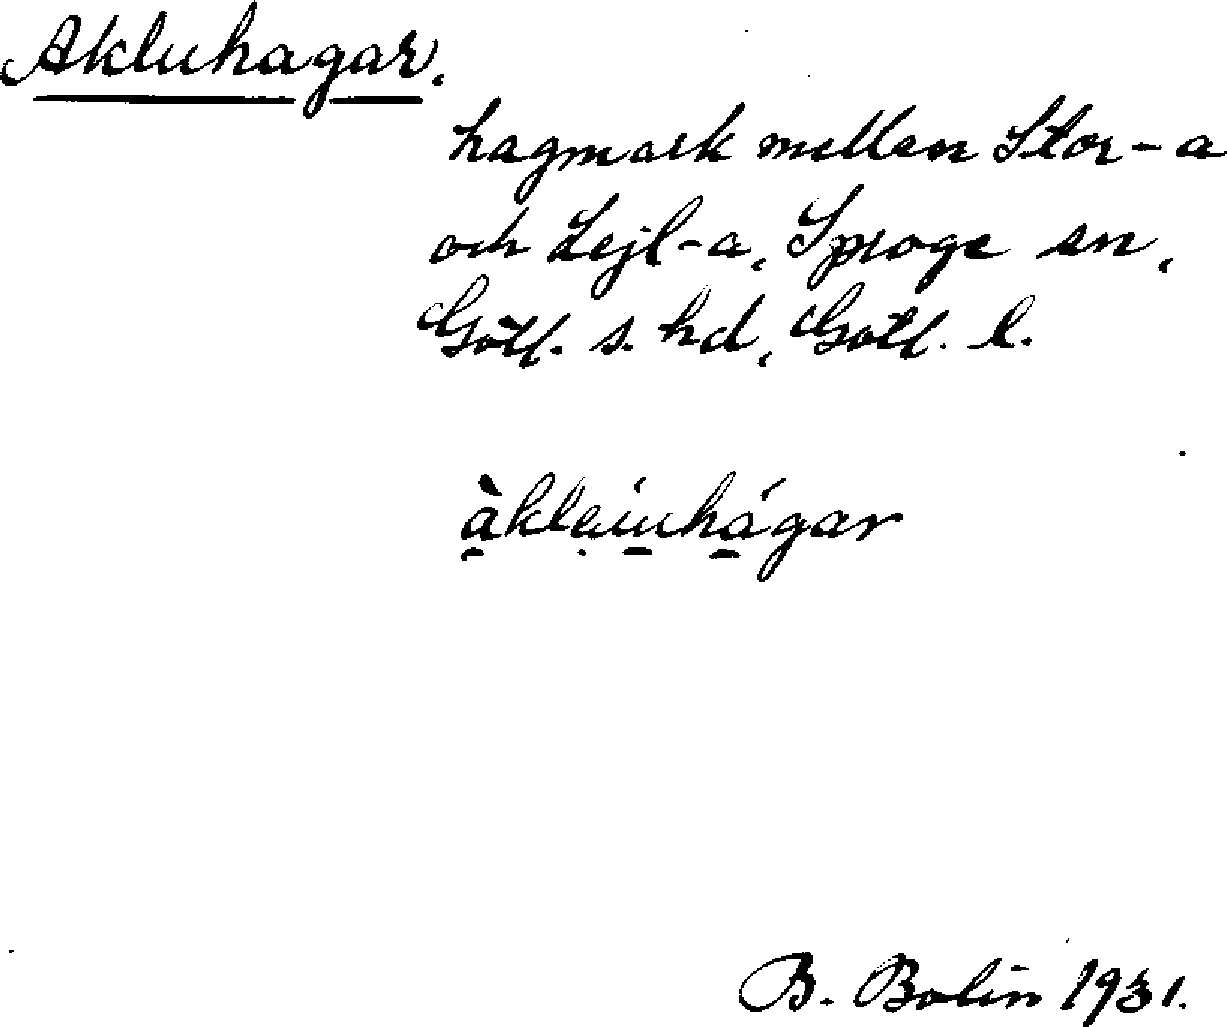 Akluhagar.
hagmark mellan Stor-a
och Lejl-a, Sproge sn,
Gotl. s. hd, Gotl. l.
àkleiuhágar
B. Bolin 1931.